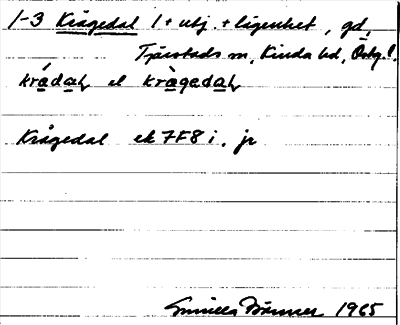 1-3 Krågedal 1 + utj. + lägenhet, gd,
Tjärstads sn, Kinda hd, Östg. l.
kràdaɫ el kràgedaɫ
Krågedal ek 7F8i, jr
Gunilla 1965